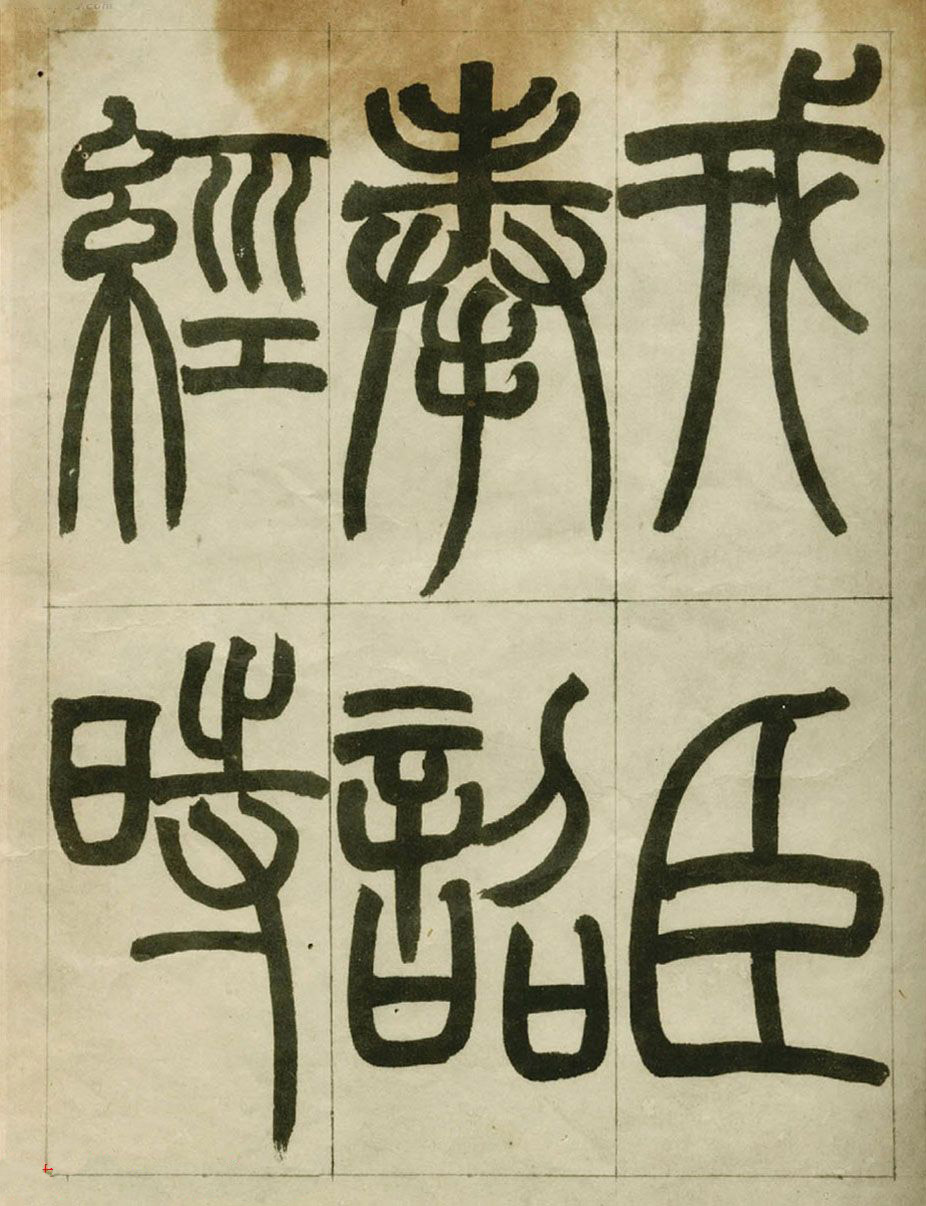 戎臣
奉詔
經時